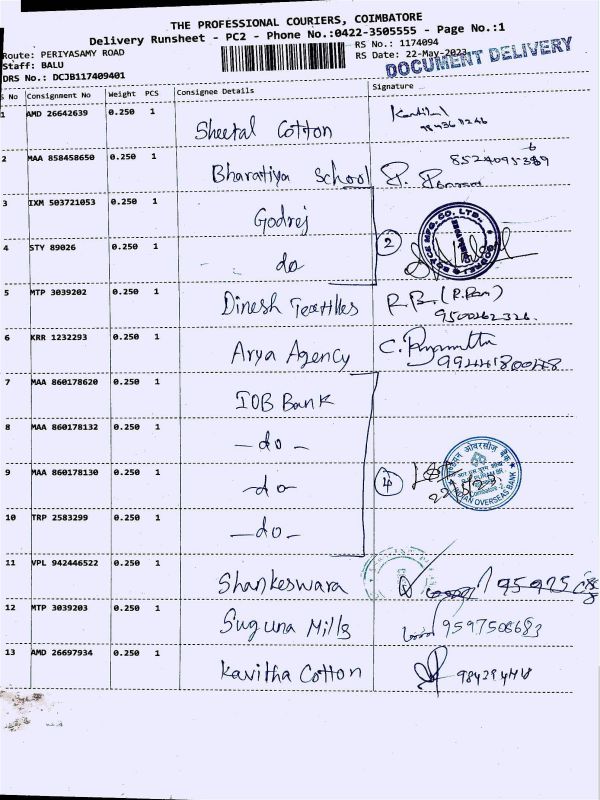 THE PROFESSIONAL COURIERS, COIMBATORE
Delivery Runsheet - PC2 - Phone No.:0422-3505555 - Page No.:1
Route: PERIYASAMY ROAD
RS No.: 1174094
Staff: BALU
RS Date: 22-May-2023
DRS No.: DCJB117409401
DOCUMENT DELIVERY
S No Consignment No Weight PCS Consignee Details Signature
1 AMD 26642639 0.250 1 Sheetal Cotton
2 MAA 858458650 0.250 1 Bharatiya School
3 IXM 503721053 0.250 1 Godrej
4 STY 89026 0.250 1 do 2
5 MTP 3039202 0.250 1 Dinesh Textiles
9500262326.
6 KRR 1232293 0.250 1 Arya Agency
7 MAA 860178620 0.250 1 IOB Bank
8 MAA 860178132 0.250 1 - do -
9 MAA 860178130 0.250 1 - do - 4
OVERSEAS BANK
10 TRP 2583299 0.250 1 - do -
11 VPL 942446522 0.250 1 Shankeswara
12 MTP 3039203 0.250 1 Suguna Mills 9597508683
13 AMD 26697934 0.250 1 Kavitha Cotton